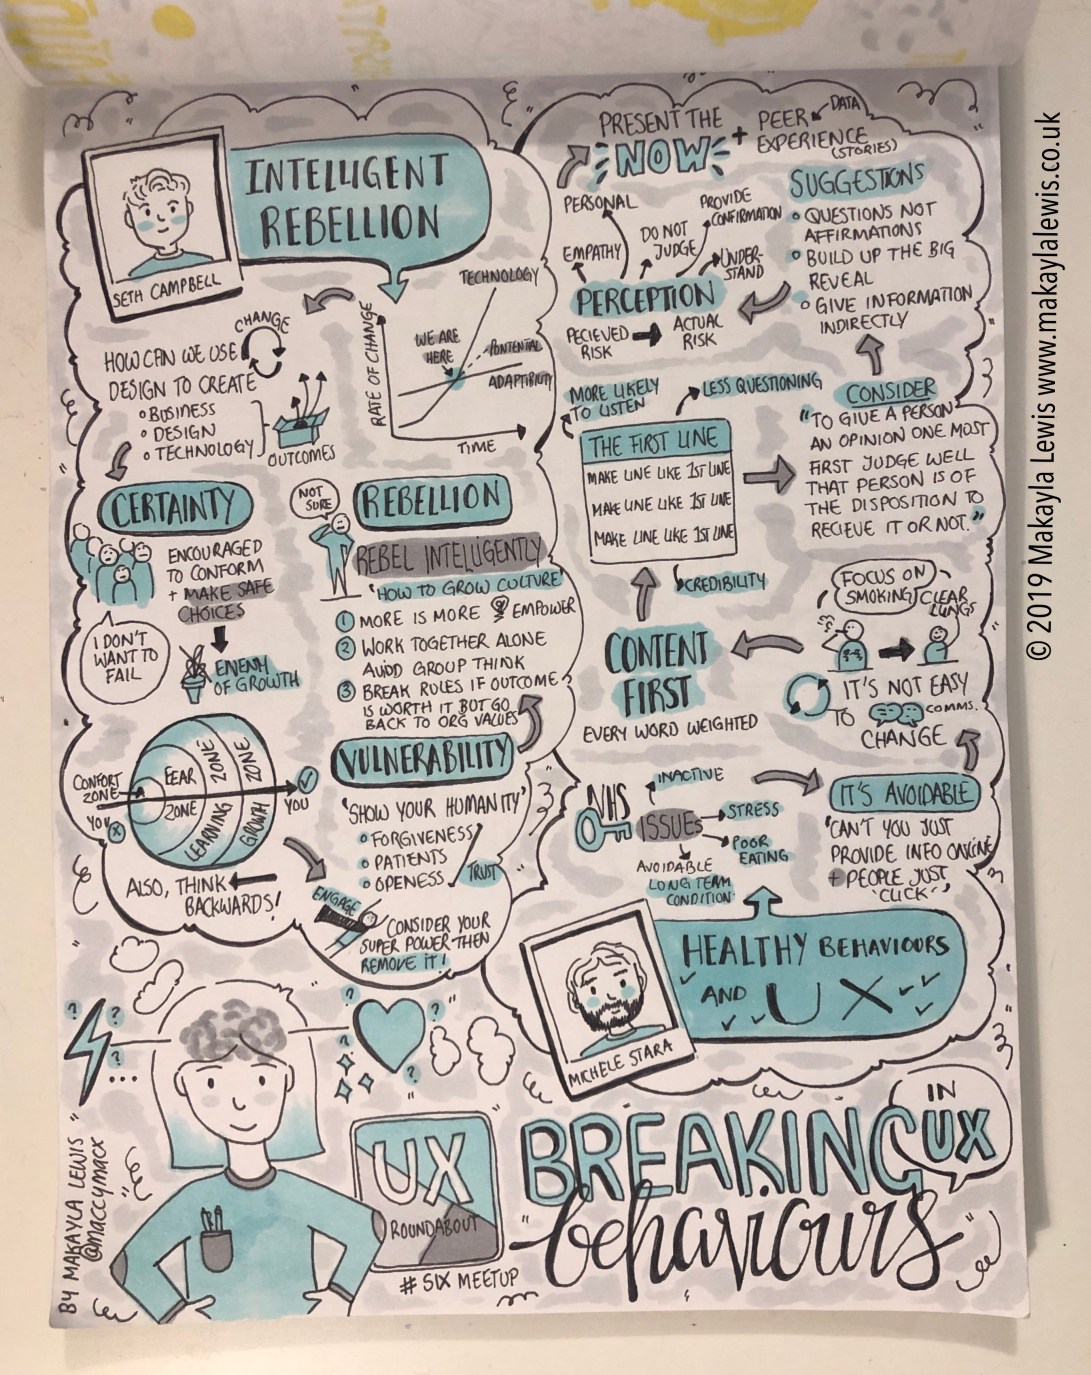 INTELLIGENT
REBELLION
SETH CAMPBELL
TECHNOLOGY
WE ARE
HERE
PONTENTIAL
ADAPTIBILITY
RATE OF CHANGE
TIME
CHANGE
HOW CAN WE USE
DESIGN TO CREATE
BUSINESS
DESIGN
TECHNOLOGY
OUTCOMES
CERTAINTY
ENCOURAGED
TO CONFORM
+ MAKE SAFE
CHOICES
I DON'T
WANT TO
FAIL
ENEMY
OF GROWTH
NOT
SURE
REBELLION
REBEL INTELLIGENTLY
'HOW TO GROW CULTURE'
1 MORE IS MORE EMPOWER
2 WORK TOGETHER ALONE
AVIOD GROUP THINK
3 BREAK RULES IF OUTCOME
IS WORTH IT BUT GO
BACK TO ORG VALUES
CONFORT
ZONE
YOU
FEAR
ZONE
LEARNING
ZONE
GROWTH
ZONE
YOU
ALSO, THINK
BACKWARDS!
VULNERABILITY
'SHOW YOUR HUMANITY'
FORGIVENESS
PATIENTS
OPENESS
TRUST
ENGAGE
CONSIDER YOUR
SUPER POWER THEN
REMOVE IT!
PRESENT THE
NOW
+ PEER
EXPERIENCE
DATA
(STORIES)
SUGGESTIONS
QUESTIONS NOT
AFFIRMATIONS
BUILD UP THE BIG
REVEAL
GIVE INFORMATION
INDIRECTLY
PERSONAL
EMPATHY
DO NOT
JUDGE
PROVIDE
CONFIRMATION
UNDER-
STAND
PERCEPTION
PECIEVED
RISK
ACTUAL
RISK
MORE LIKELY
TO LISTEN
LESS QUESTIONING
THE FIRST LINE
MAKE LINE LIKE 1ST LINE
MAKE LINE LIKE 1ST LINE
MAKE LINE LIKE 1ST LINE
CREDIBILITY
CONSIDER
"TO GIVE A PERSON
AN OPINION ONE MOST
FIRST JUDGE WELL
THAT PERSON IS OF
THE DISPOSITION TO
RECIEUE IT OR NOT."
CONTENT
FIRST
EVERY WORD WEIGHTED
FOCUS ON
SMOKING
CLEAR
LUNGS
IT'S NOT EASY
TO COMMS.
CHANGE
NHS
ISSUES
INACTIVE
STRESS
POOR
EATING
AVOIDABLE
LONG TERM
CONDITION
IT'S AVOIDABLE
'CAN'T YOU JUST
PROVIDE INFO ONLINE
+ PEOPLE JUST
'CLICK''
HEALTHY BEHAVIOURS
AND UX
MICHELE STARA
BREAKING
behaviours
IN
UX
UX
ROUNDABOUT
# SIX MEETUP
BY MAKAYLA LEWIS
@maccymacx
© 2019 Makayla Lewis www.makaylalewis.co.uk